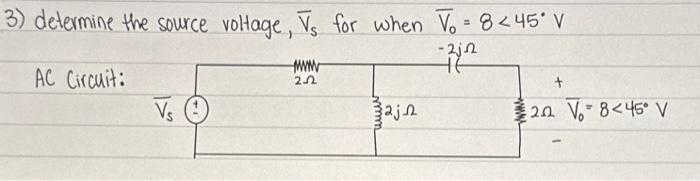 3) determine the source voltage, V̅s for when V̅o = 8<45° V
-2jΩ
AC Circuit:
2Ω
V̅s
+
-
2jΩ
+
2Ω V̅o = 8<45° V
-